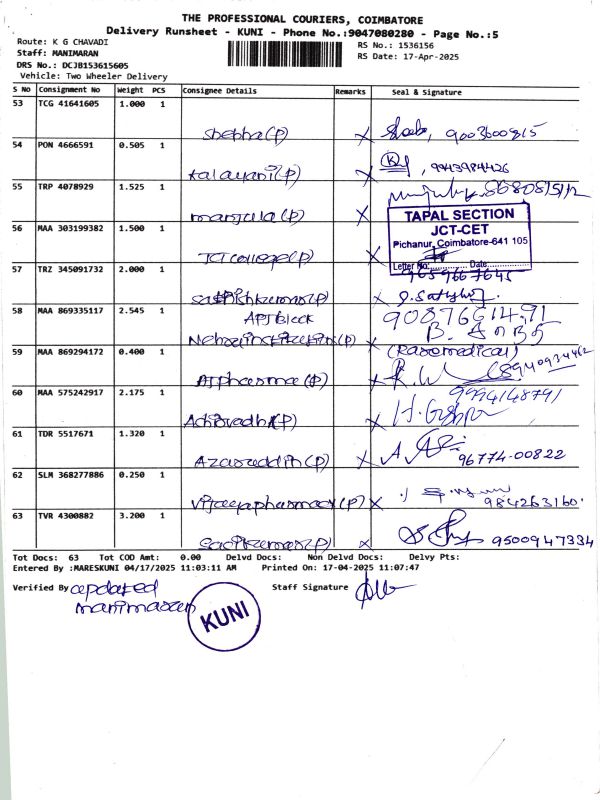 THE PROFESSIONAL COURIERS, COIMBATORE
Delivery Runsheet - KUNI - Phone No.:9047080280 - Page No.:5
Route: K G CHAVADI
RS No.: 1536156
Staff: MANIMARAN
RS Date: 17-Apr-2025
DRS No.: DCJB153615605
Vehicle: Two Wheeler Delivery
S No Consignment No Weight PCS Consignee Details Remarks Seal & Signature
53 TCG 41641605 1.000 1
Shebha(P) X 9003600815
54 PON 4666591 0.505 1
Kalaivani(P) X 9943984426
55 TRP 4078929 1.525 1
manjula(P) X
56 MAA 303199382 1.500 1
TAPAL SECTION
JCT-CET
Pichanur, Coimbatore-641 105
Letter No: Date
JCT college(P) X
57 TRZ 345091732 2.000 1
9659667645
Sathishkumar(P) X
58 MAA 869335117 2.545 1
APJ Block
Nehru institution(P) X
59 MAA 869294172 0.400 1
(Rasemedical)
AJ pharma(P) X 8940934462
60 MAA 575242917 2.175 1
9994148791
X
61 TDR 5517671 1.320 1
Azaruddin(P) X 96774-00822
62 SLM 368277886 0.250 1
Vijayapharmacy(P) X 984263160
63 TVR 4300882 3.200 1
X 9500947334
Tot Docs: 63 Tot COD Amt: 0.00 Delvd Docs: Non Delvd Docs: Delvy Pts:
Entered By :MARESKUNI 04/17/2025 11:03:11 AM Printed On: 17-04-2025 11:07:47
Verified By updated
manimaran
Staff Signature
KUNI